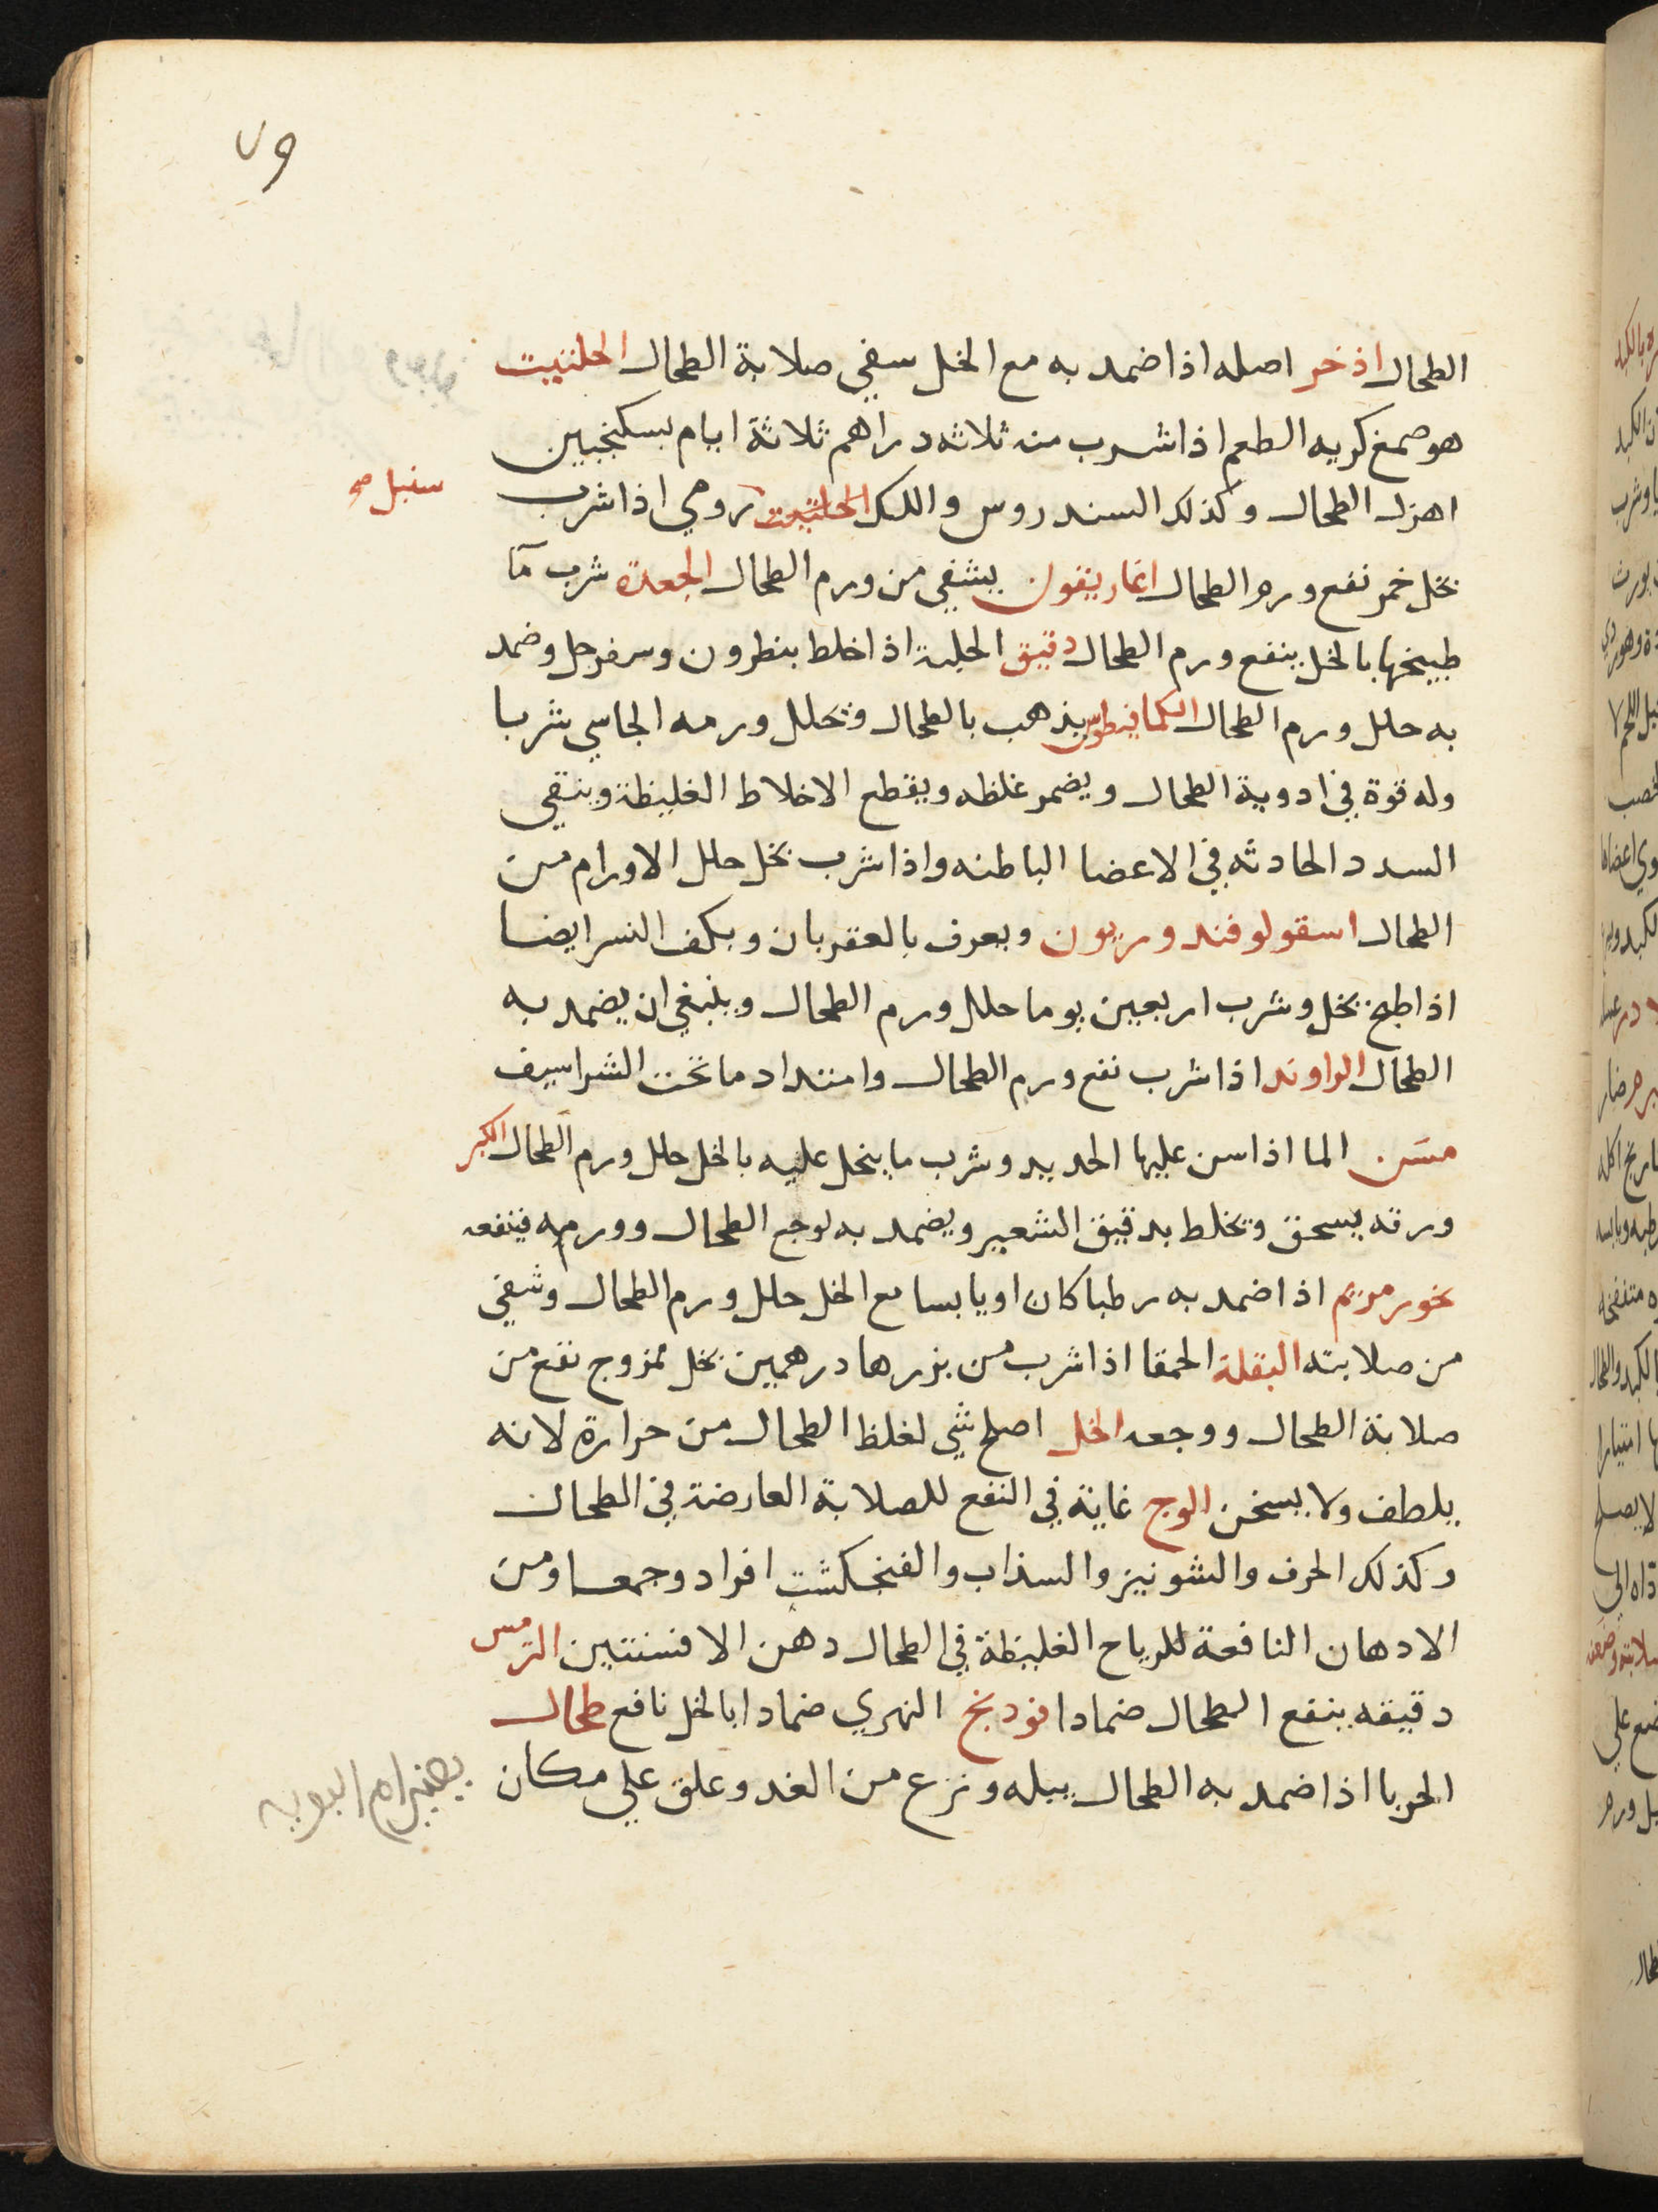 ٧٩
الطحال اذخر اصله اذا ضمد به مع الخل سفي صلابة الطحال الحلتيت
هو صمغ كريه الطعم اذا شرب منه ثلاثه دراهم ثلاثة ايام بسكنجبين
اهزل الطحال وكذلك السندروس واللك الحلتيت رومي اذا شرب
سنبل صح
بخل خمر نفع ورم الطحال اغاريقون يشفي من ورم الطحال الجعدة شرب مآ
طبيخها بالخل ينفع ورم الطحال دقيق الحلبة اذا خلط بنطرون وسفرجل وضمد
به حلل ورم الطحال الكمافيطوس يذهب بالطحال ويحلل ورمه الجاسي شربا
وله قوة في ادوية الطحال ويضمر غلظه ويقطع الاخلاط الغليظة وينقي
السدد الحادثه في الاعضا الباطنه واذا شرب بخل حلل الاورام من
الطحال اسقولوفندوريون ويعرف بالعقربان وبكف النسر ايضا
اذا طبخ بخل وشرب اربعين يوما حلل ورم الطحال وينبغي ان يضمد به
الطحال الراوند اذا شرب نفع ورم الطحال وامتداد ما تحت الشراسيف
مسن الما اذا سن عليها الحديد وشرب ما ينحل عليه بالخل حلل ورم الطحال الكبر
ورقه يسحق ويخلط بدقيق الشعير ويضمد به لوجع الطحال وورمه فينفعه
بخور مريم اذا ضمد به رطبا كان او يابسا مع الخل حلل ورم الطحال وشفي
من صلابته البقلة الحمقا اذا شرب من بزرها درهمين بخل ممزوج نفع من
صلابة الطحال ووجعه الخل اصلح شي لغلظ الطحال من حرارة لانه
يلطف ولا يسخن الوج غاية في النفع للصلابة العارضة في الطحال
وكذلك الحرف والشونيز والسذاب والفنجكشت افراد وجمعا ومن
الادهان النافعة للرياح الغليظة في الطحال دهن الافسنتين الترمس
دقيقه ينفع الطحال ضمادا فودنج النهري ضمادا بالخل نافع طحال
الحربا اذا ضمد به الطحال بيله ونزع من الغد وعلق علي مكان